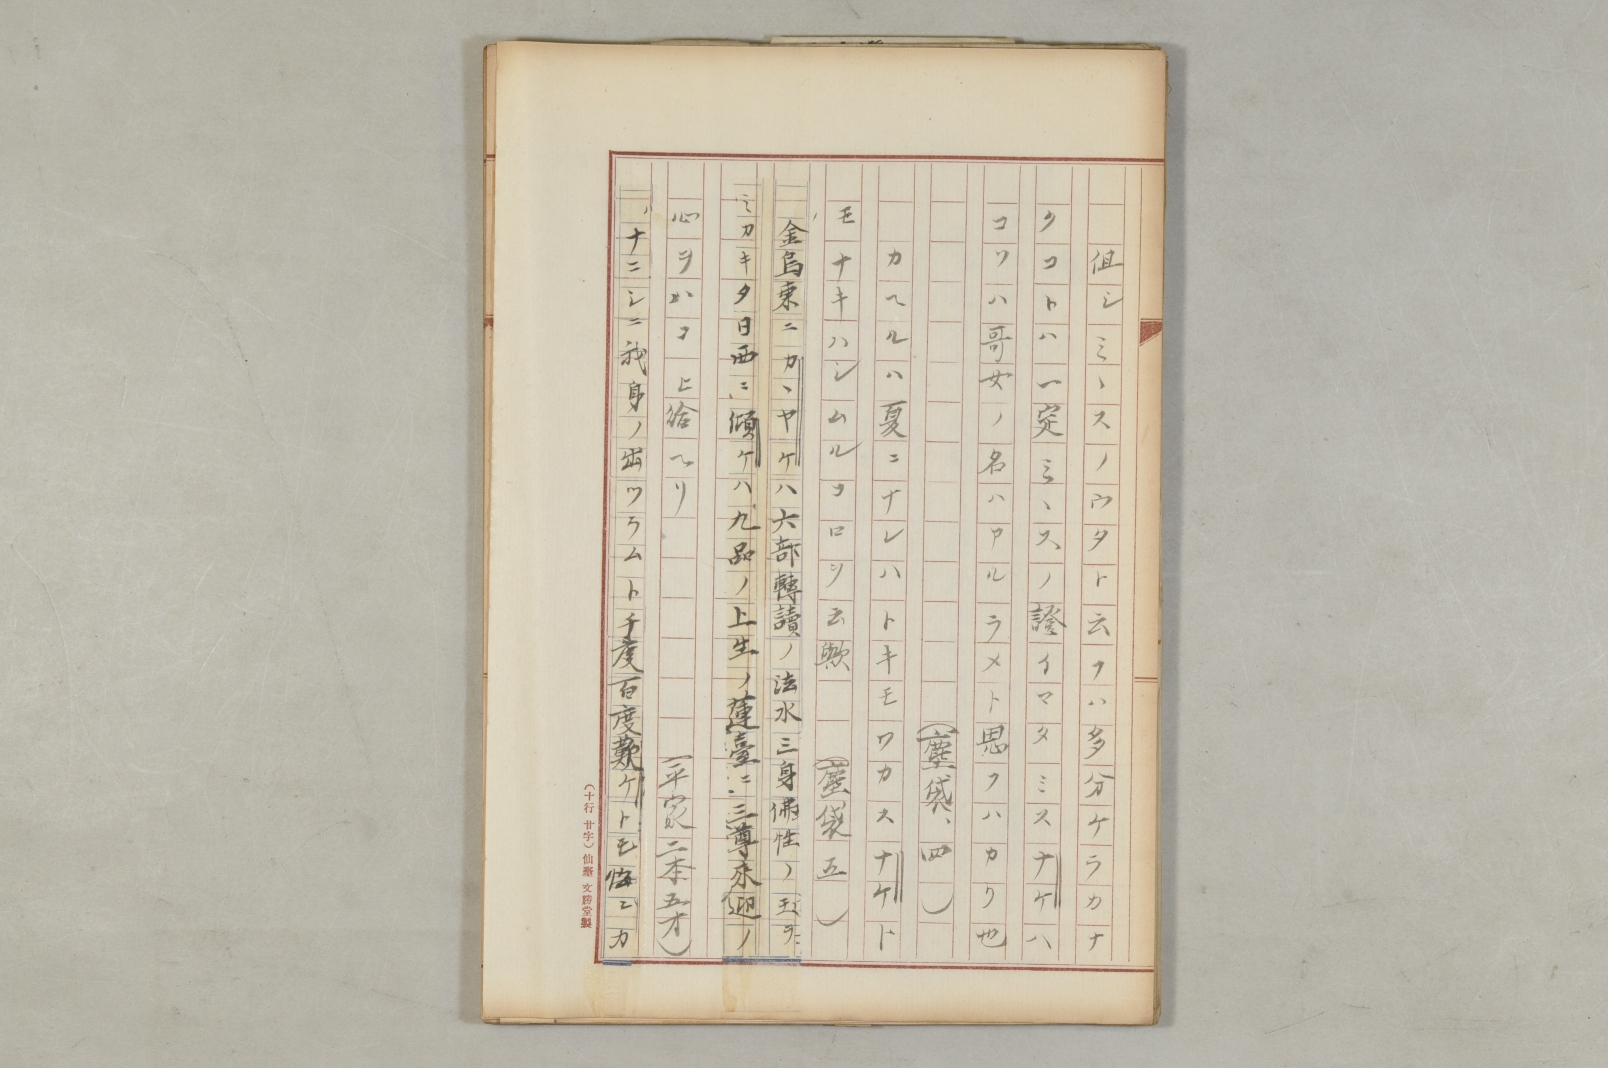 但シミヽスノウタト云フハ多分ケラカナ
クコトハ一定ミヽスノ證イマタミスナケハ
コワハ哥女ノ名ハアルラメト思フハカリ也
（塵袋、四）
カヘルハ夏ニナレハトキモワカスナケト
モナキハシムルコロヲ云歟　（塵袋五）
金烏東ニカヽヤケハ六部轉讀ノ法水三身佛性ノ玉ヲ
ミカキタ日西ニ傾ケハ九品ノ上生ノ蓮臺ニ三尊来迎ノ
心ヲハコヒ給ヘリ
（平家二本五オ）
ナニシニ我身ノ出ツラムト千度百度歎ケトモ悔ニカ
（十行 廿字）仙臺 文勝堂製